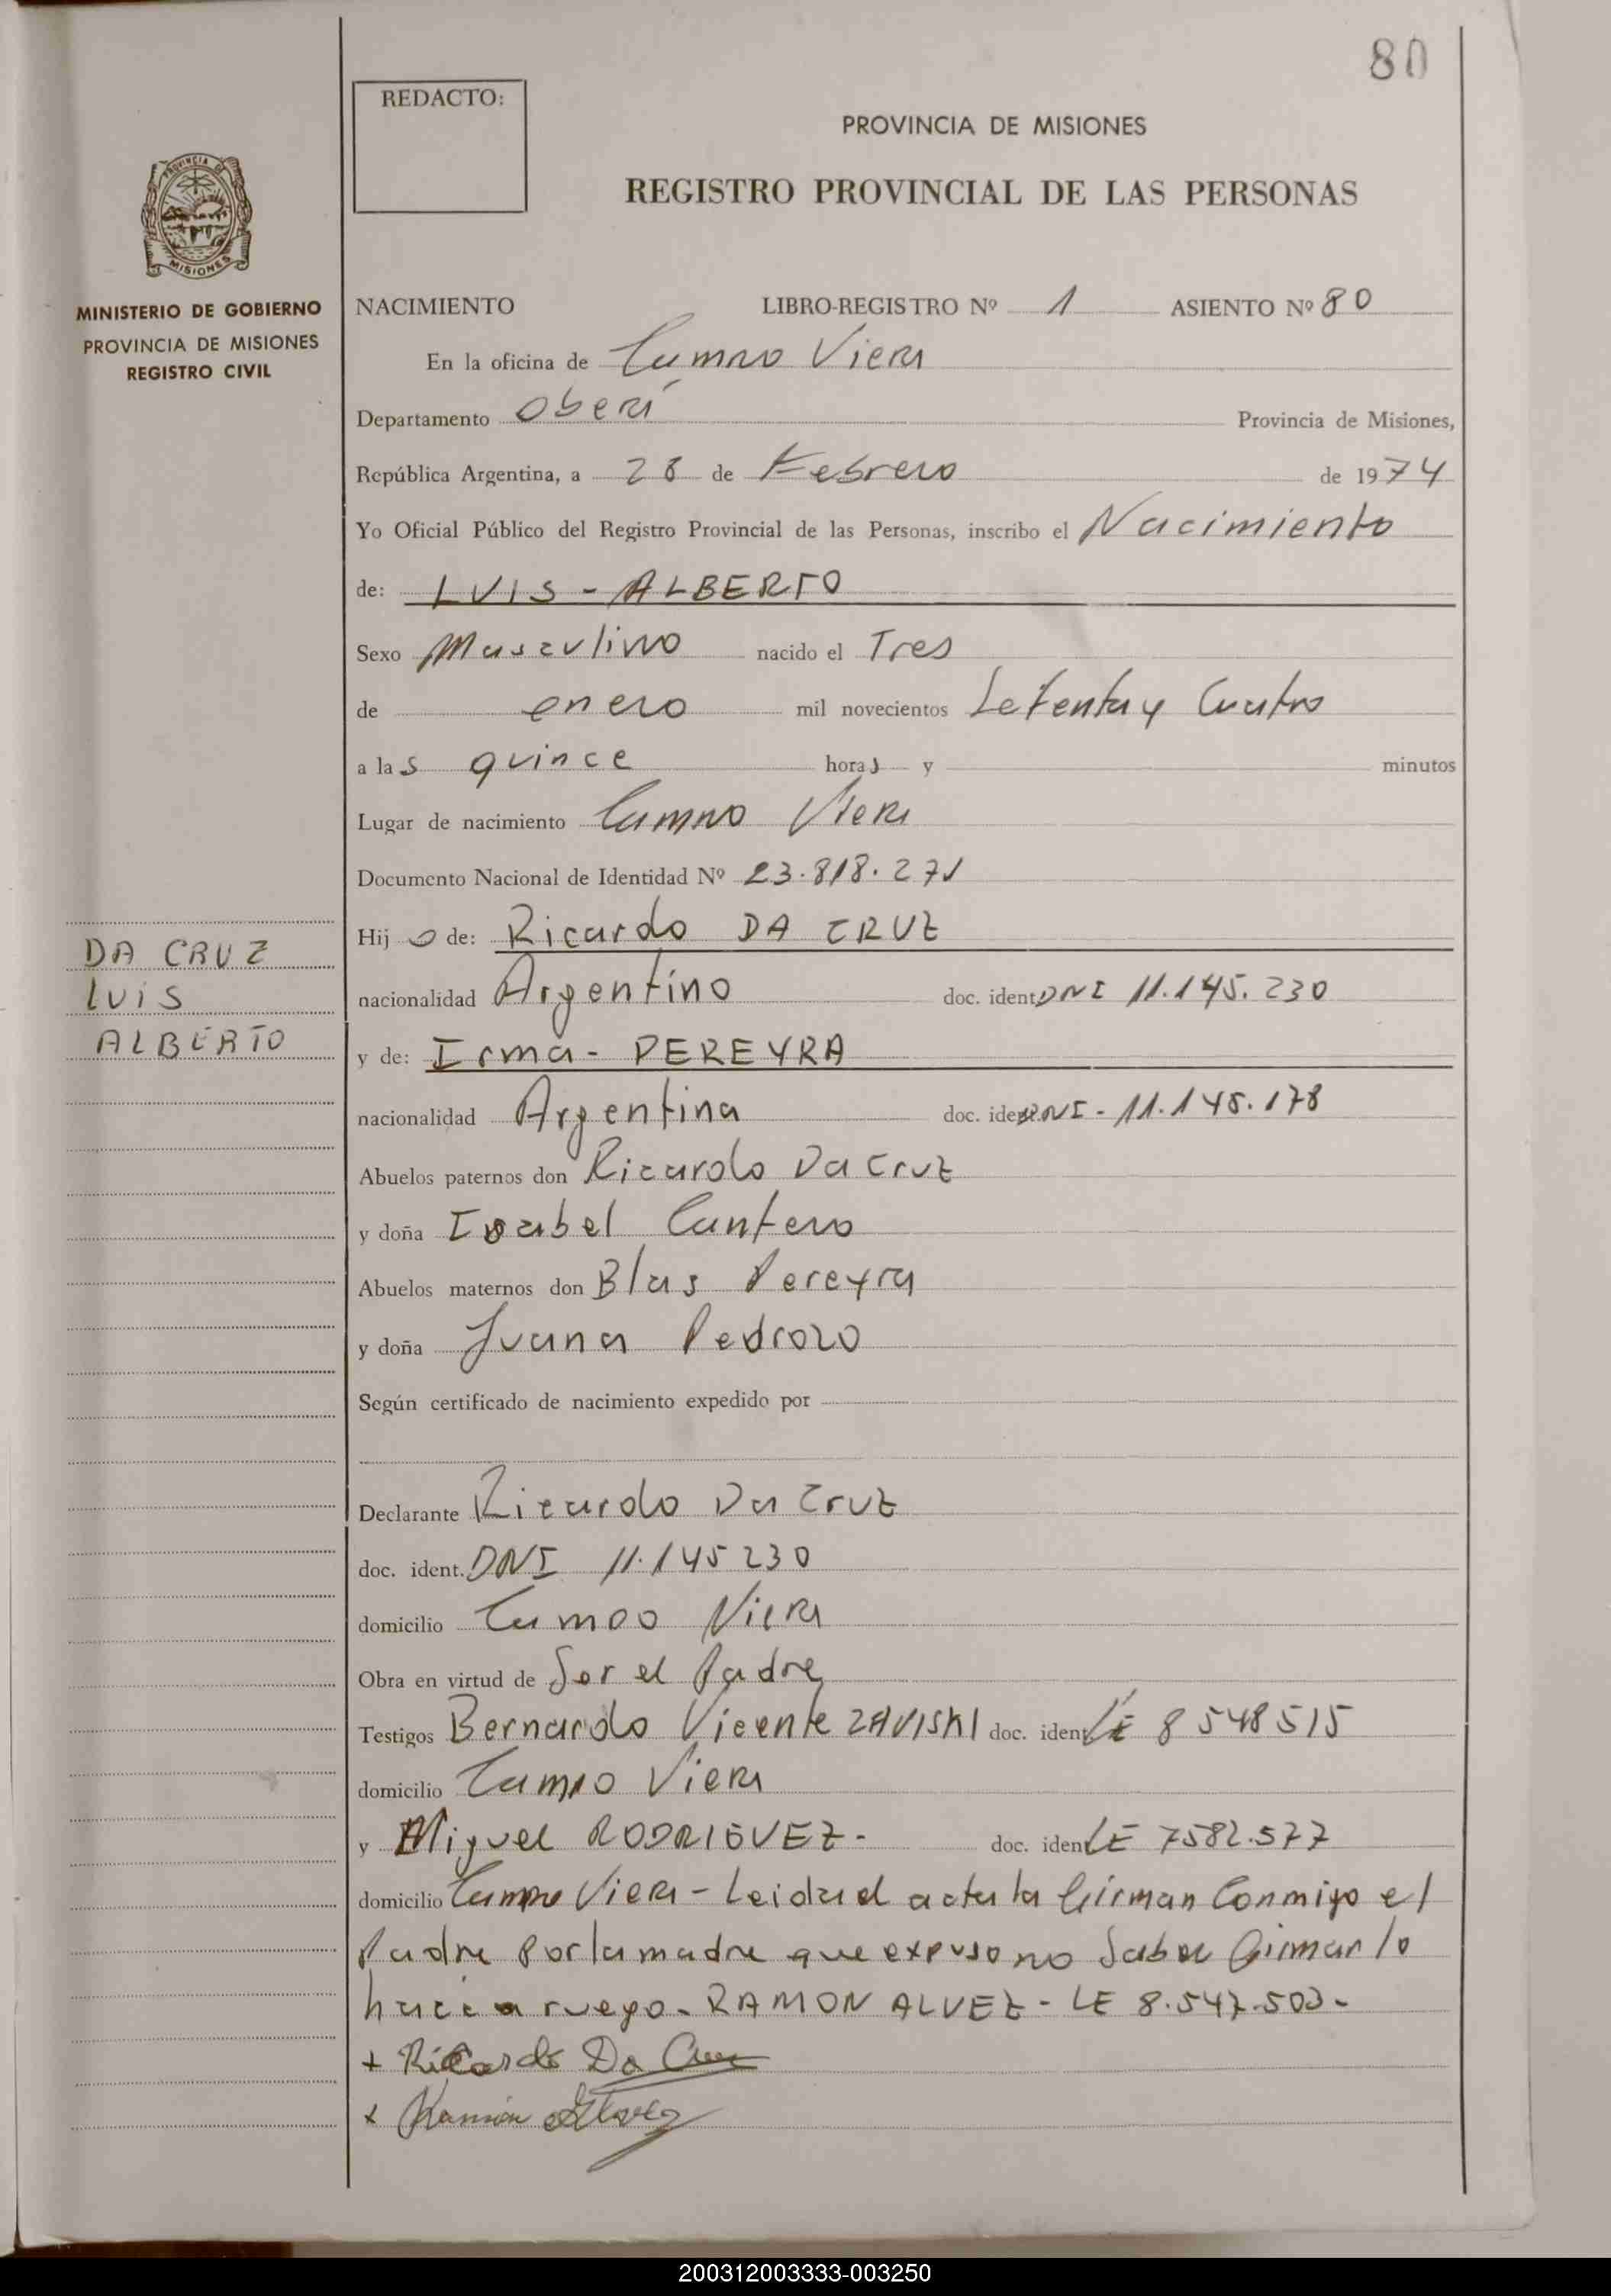 80
REDACTO:
PROVINCIA DE MISIONES
REGISTRO PROVINCIAL DE LAS PERSONAS
PROVINCIA DE
MISIONES
MINISTERIO DE GOBIERNO
PROVINCIA DE MISIONES
REGISTRO CIVIL
NACIMIENTO LIBRO-REGISTRO Nº 1 ASIENTO Nº 80
En la oficina de Campo Viera
Departamento Oberá Provincia de Misiones,
República Argentina, a 28 de Febrero de 1974
Yo Oficial Público del Registro Provincial de las Personas, inscribo el Nacimiento
de: LUIS - ALBERTO
Sexo Masculino nacido el Tres
de enero mil novecientos Setenta y Cuatro
a las quince horas y minutos
Lugar de nacimiento Campo Viera
Documento Nacional de Identidad Nº 23.818.271
Hijo de: Ricardo DA CRUZ
nacionalidad Argentino doc. ident. DNI 11.145.230
y de: Irma - PEREYRA
nacionalidad Argentina doc. ident. DNI - 11.145.178
Abuelos paternos don Ricardo Da Cruz
y doña Isabel Cantero
Abuelos maternos don Blas Pereyra
y doña Juana Pedrozo
Según certificado de nacimiento expedido por
Declarante Ricardo Da Cruz
doc. ident. DNI 11.145230
domicilio Campo Viera
Obra en virtud de Ser el Padre
Testigos Bernardo Vicente ZAVISKI doc. ident. LE 8548515
domicilio Campo Viera
y Miguel RODRIGUEZ.- doc. ident. LE 7582.577
domicilio Campo Viera - Leida el acta la firman Conmigo el
Padre Por la madre que expuso no Saber firmar lo
hace a ruego - RAMON ALVEZ - LE 8.547.503-
+ Ricardo Da Cruz
x Ramón Alvez
DA CRUZ
LUIS
ALBERTO
200312003333-003250